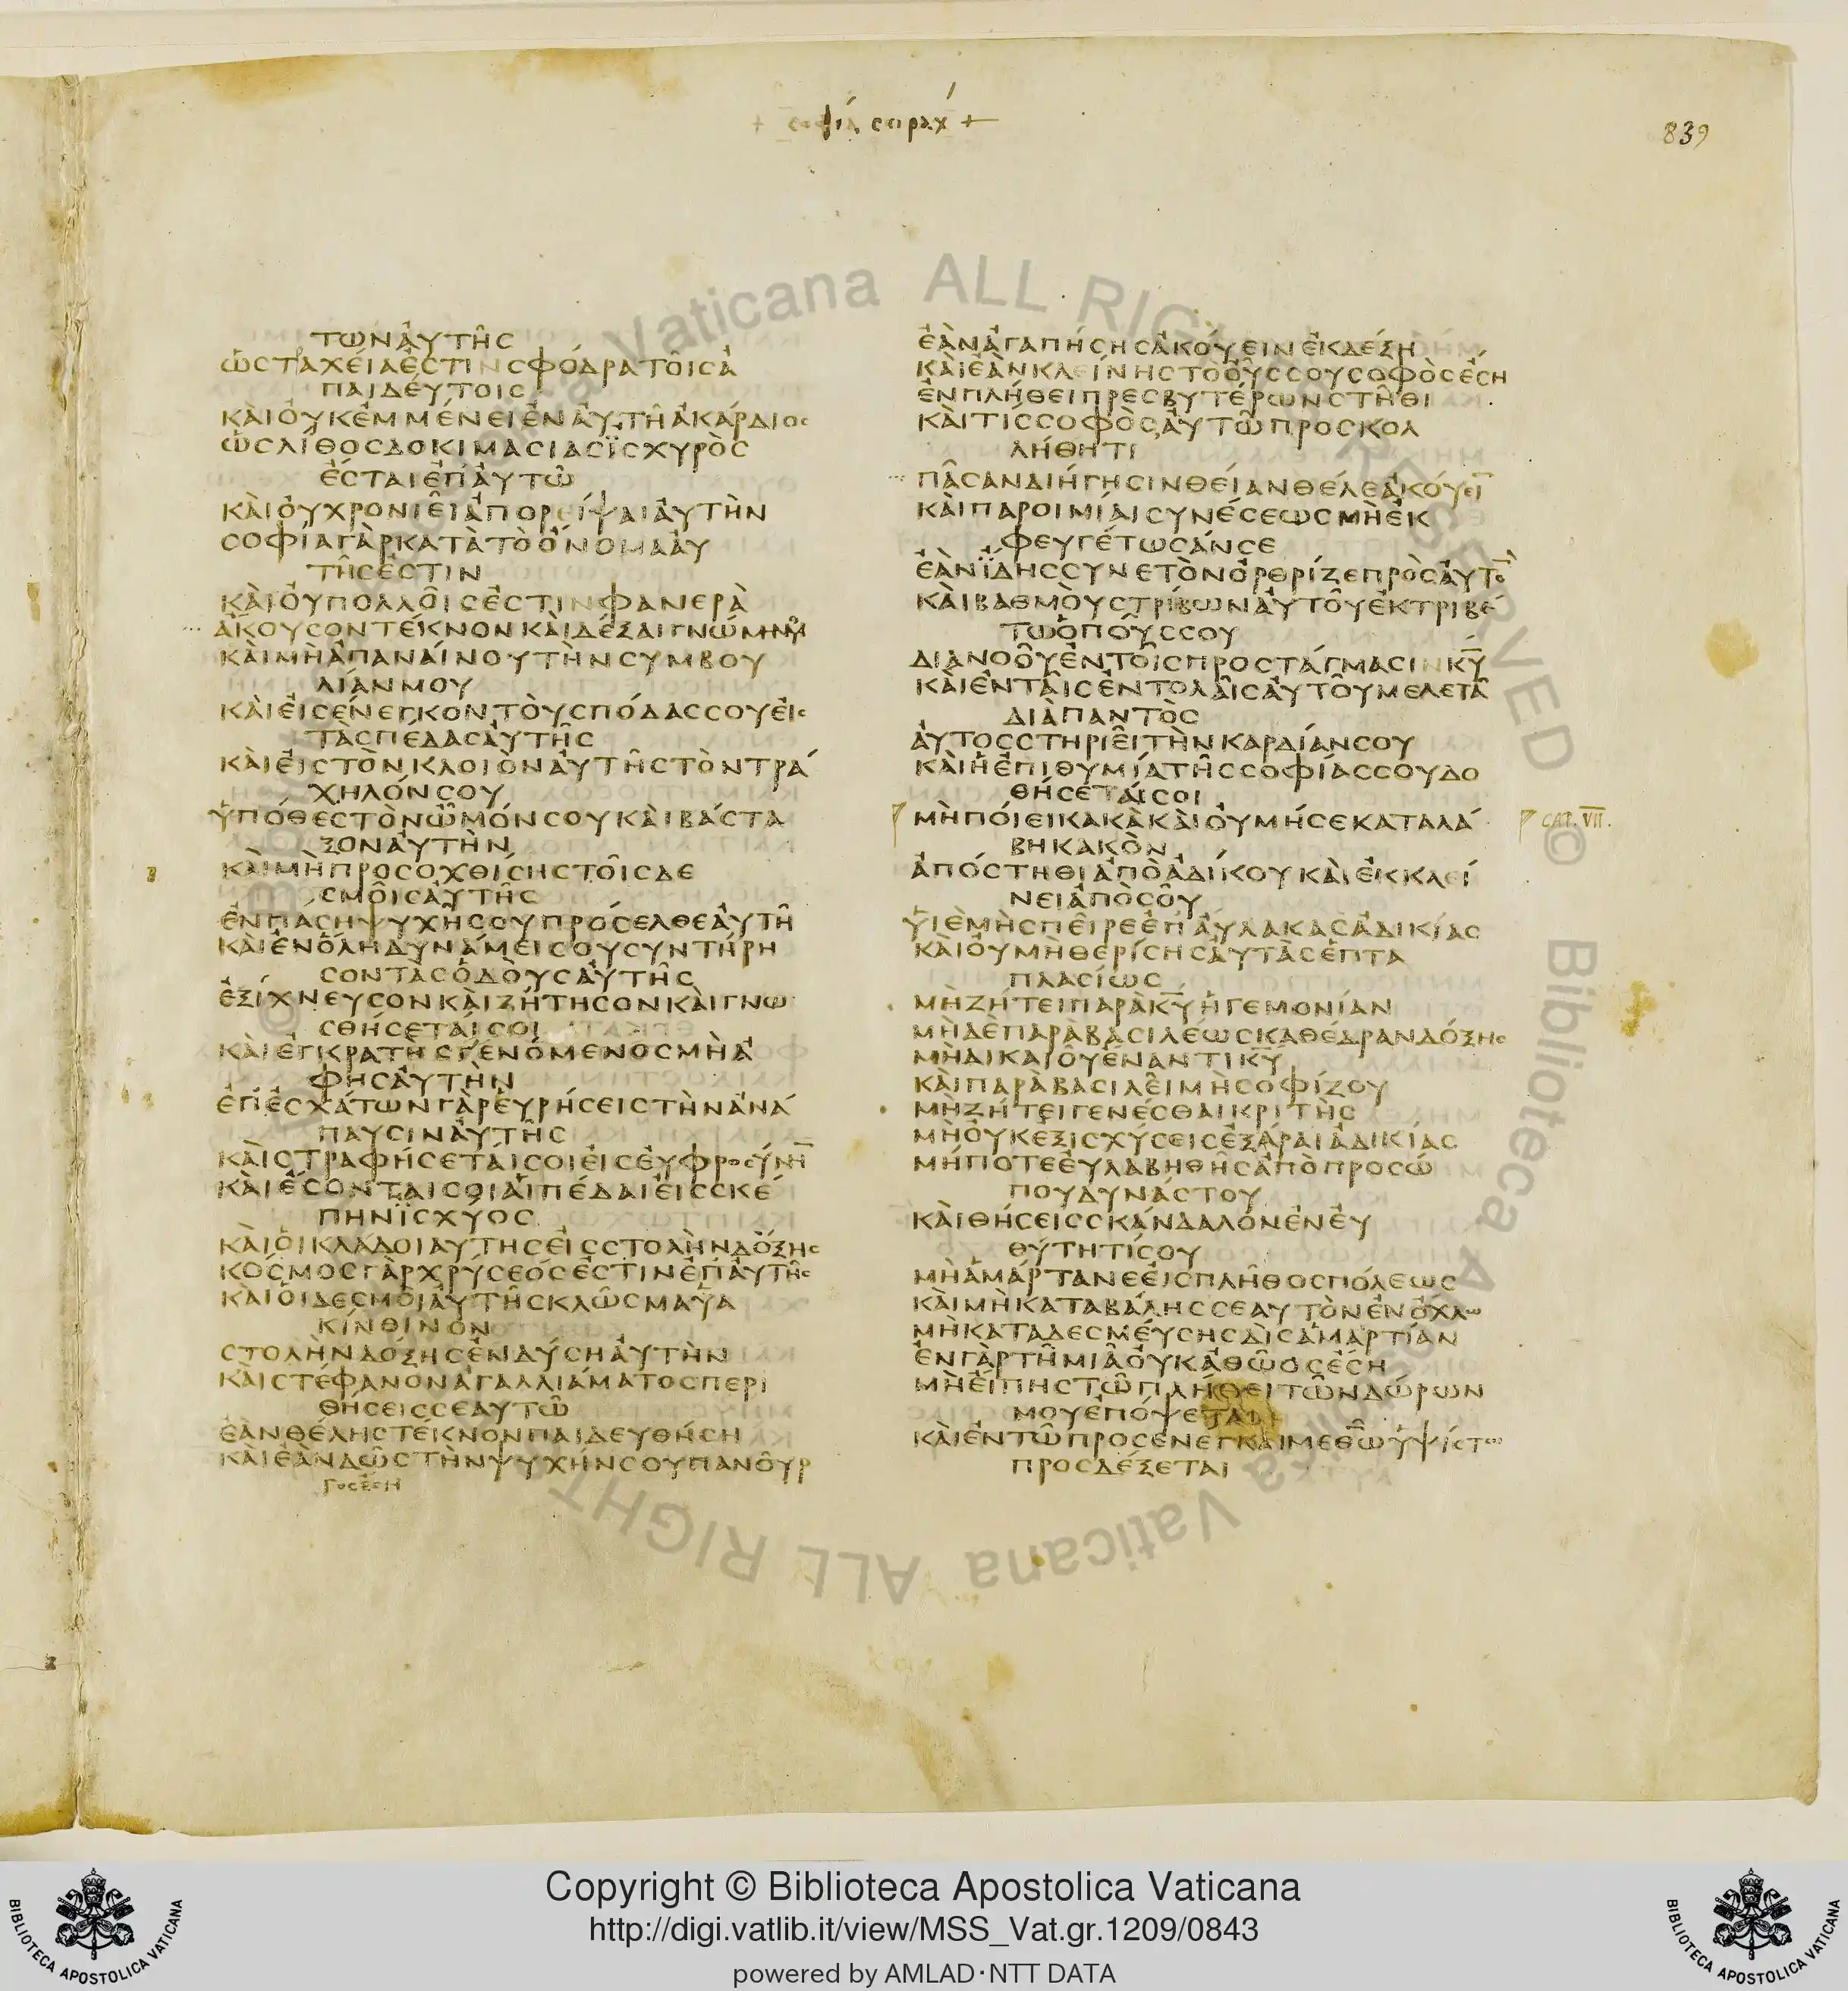 + σοφία σειράχ +
839
ΤΩΝἈΥΤΗ͂Σ
ὩΣΤΑΧΕῖΑἘΣΤΙΝΣΦΌΔΡΑΤΟΙ͂ΣἈ
ΠΑΙΔΈΥΤΟΙΣ
ΚΑῚΟΥ̓ΚἘΜΜΈΝΕΙἘΝἈΥΤΗ͂ἈΚΆΡΔΙΟΣ
ὩΣΛΊΘΟΣΔΟΚΙΜΑΣΙΑΣΪΣΧΥΡῸΣ
ἜΣΤΑΙἘΠἈΥΤΩ͂
ΚΑῚΟΥ̓ΧΡΟΝΙΕΙ͂ἈΠΟΡΕΊΨΑΙἈΥΤῊΝ
ΣΟΦΊΑΓᾺΡΚΑΤᾺΤῸὌΝΟΜΑἈΥ
ΤΗ͂ΣΕΣΤΙΝ
ΚΑῚΟΥ̓ΠΟΛΛΟΙ͂ΣἘΣΤΙΝΦΑΝΕΡᾺ
ἌΚΟΥΣΟΝΤΈΚΝΟΝΚΑῚΔΈΞΑΙΓΝΏΜΗΝΜΟΥ
ΚΑῚΜῊἈΠΑΝΑΊΝΟΥΤῊΝΣΥΜΒΟΥ
ΛΊΑΝΜΟΥ
ΚΑῚΕἸΣΈΝΕΓΚΟΝΤΟῪΣΠΌΔΑΣΣΟΥΕἸΣ
ΤᾺΣΠΈΔΑΣἈΥΤΗ͂Σ
ΚΑῚΕἸΣΤῸΝΚΛΟΙΟΝἈΥΤΗ͂ΣΤῸΝΤΡΆ
ΧΗΛΌΝΣΟΥ
ὙΠΌΘΕΣΤῸΝὮΜΌΝΣΟΥΚΑῚΒΆΣΤΑ
ΞΟΝἈΥΤῊΝ
ΚΑῚΜῊΠΡΟΣΟΧΘΊΣΗΣΤΟΙ͂ΣΔΕ
ΣΜΟΙ͂ΣἈΥΤΗ͂Σ
ἘΝΠΆΣΗΨΥΧΗ͂ΣΟΥΠΡΌΣΕΛΘΕἈΥΤΗ͂
ΚΑῚἘΝὍΛΗΔΥΝΆΜΕΙΣΟΥΣΥΝΤΉΡΗ
ΣΟΝΤᾺΣὉΔΟῪΣἈΥΤΗ͂Σ
ἘΞΊΧΝΕΥΣΟΝΚΑῚΖΉΤΗΣΟΝΚΑῚΓΝΩ
ΣΘΉΣΕΤΑΊΣΟΙ
ΚΑῚἘΓΚΡΑΤῊΣΓΕΝΌΜΕΝΟΣΜῊἈ
ΦΗΣἈΥΤῊΝ
ἘΠἘΣΧΆΤΩΝΓᾺΡΕὙΡΉΣΕΙΣΤῊΝἈΝΆ
ΠΑΥΣΙΝἈΥΤΗ͂Σ
ΚΑῚΣΤΡΑΦΉΣΕΤΑΊΣΟΙΕἸΣΕΥ̓ΦΡΟΣΎΝΗ̅
ΚΑῚἜΣΟΝΤΑΙΣΟΙΑἹΠΈΔΑΙΕἸΣΣΚΈ
ΠΗΝΪΣΧΎΟΣ
ΚΑῚΟἹΚΛΆΔΟΙΑΥΤΗΣΕἸΣΣΤΟΛῊΝΔΌΞΗΣ
ΚΌΣΜΟΣΓᾺΡΧΡΎΣΕΌΣἘΣΤΙΝἘΠἈΥΤΗ͂Σ
ΚΑῚΟἹΔΕΣΜΟῚἈΥΤΗ͂ΣΚΛΩ͂ΣΜΑΫ́Α
ΚΊΝΘΙΝΟΝ
ΣΤΟΛῊΝΔΌΞΗΣἘΝΔΎΣΗἈΥΤῊΝ
ΚΑῚΣΤΈΦΑΝΟΝἈΓΑΛΛΙΆΜΑΤΟΣΠΕΡΙ
ΘΉΣΕΙΣΣΕΑΥΤΩ͂
ἘᾺΝΘΈΛΗΣΤΈΚΝΟΝΠΑΙΔΕΥΘΉΣΗ
ΚΑῚἘᾺΝΔΩ͂ΣΤῊΝΨΥΧΉΝΣΟΥΠΑΝΟΥ͂Ρ
ΓΟΣἜΣΗ
ἘᾺΝἈΓΑΠΉΣΗΣἈΚΟΎΕΙΝἘΚΔΈΞΗ
ΚΑῚἘᾺΝΚΛΕΊΝΗΣΤῸΟΥ͂ΣΣΟΥΣΟΦῸΣἜΣΗ
ἘΝΠΛΉΘΕΙΠΡΕΣΒΥΤΈΡΩΝΣΤΗ͂ΘΙ
ΚΑῚΤΊΣΣΟΦῸΣἈΥΤΩ͂ΠΡΟΣΚΟΛ
ΛΉΘΗΤΙ
ΠΑ͂ΣΑΝΔΙΉΓΗΣΙΝΘΕΊΑΝΘΈΛΕἈΚΟΎΕΙ̅
ΚΑῚΠΑΡΟΙΜΊΑΙΣΥΝΈΣΕΩΣΜῊἘΚ
ΦΕΥΓΈΤΩΣΆΝΣΕ
ἘᾺΝΪ́ΔΗΣΣΥΝΕΤῸΝὌΡΘΡΙΖΕΠΡῸΣἈΥΤΟ̅
ΚΑῚΒΑΘΜΟῪΣΤΡΊΒΩΝἈΥΤΟΥ͂ἘΚΤΡΙΒΈ
ΤΩὉΠΟΎΣΣΟΥ
ΔΙΑΝΟΟΥ͂ἘΝΤΟΙ͂ΣΠΡΟΣΤΆΓΜΑΣΙΝΚΥ̅
ΚΑῚἘΝΤΑΙ͂ΣἘΝΤΟΛΑΙ͂ΣἈΥΤΟΥ͂ΜΕΛΕΤΑ͂
ΔΙᾺΠΑΝΤῸΣ
ἈΥΤῸΣΣΤΗΡΙΕΙ͂ΤῊΝΚΑΡΔΊΑΝΣΟΥ
ΚΑῚἩἘΠΙΘΥΜΊΑΤΗ͂ΣΣΟΦΊΑΣΣΟΥΔΟ
ΘΉΣΕΤΑΊΣΟΙ
ΜῊΠΟΊΕΙΚΑΚᾺΚΑῚΟΥ̓ΜΉΣΕΚΑΤΑΛΆ
ΒΗΚΑΚῸΝ
CAP. VII.
ἈΠΌΣΤΗΘΙἈΠῸἈΔΊΚΟΥΚΑῚἘΚΚΛΕΊ
ΝΕΙἈΠῸΣΟΥ͂
ΥἹῈΜῊΣΠΕΙ͂ΡΕἘΠἈΎΛΑΚΑΣἈΔΙΚΊΑΣ
ΚΑῚΟΥ̓ΜῊΘΕΡΊΣΗΣἈΥΤᾺΣἙΠΤΑ
ΠΛΑΣΊΩΣ
ΜῊΖΉΤΕΙΠΑΡᾺΚΥ̅ἩΓΕΜΟΝΊΑΝ
ΜΗΔῈΠΑΡᾺΒΑΣΙΛΈΩΣΚΑΘΈΔΡΑΝΔΌΞΗΣ
ΜῊΔΙΚΑΙΟΥ͂ἜΝΑΝΤΙΚΥ̅
ΚΑῚΠΑΡᾺΒΑΣΙΛΕΙ͂ΜῊΣΟΦΊΖΟΥ
ΜῊΖΉΤΕΙΓΕΝΈΣΘΑΙΚΡΙΤῊΣ
ΜῊΟΥ̓ΚΕΞΙΣΧΎΣΕΙΣἘΞΆΡΑΙἈΔΙΚΊΑΣ
ΜΉΠΟΤΕΕΥ̓ΛΑΒΗΘΗ͂ΣἈΠῸΠΡΟΣΏ
ΠΟΥΔΥΝΆΣΤΟΥ
ΚΑῚΘΉΣΕΙΣΣΚΆΝΔΑΛΟΝἘΝΕΥ̓
ΘΎΤΗΤΊΣΟΥ
ΜῊἉΜΆΡΤΑΝΕΕἸΣΠΛΗ͂ΘΟΣΠΌΛΕΩΣ
ΚΑῚΜῊΚΑΤΑΒΆΛΗΣΣΕΑΥΤῸΝἘΝὌΧΛΩ
ΜῊΚΑΤΑΔΕΣΜΕΎΣΗΣΔῚΣἉΜΑΡΤΊΑΝ
ἘΝΓᾺΡΤΗ͂ΜΙΑ͂ΟΥ̓ΚἈΘΩ͂ΟΣἜΣΗ
ΜῊΕΊΠΗΣΤΩ͂ΠΛΉΘΕΙΤΩ͂ΝΔΏΡΩΝ
ΜΟΥἘΠΌΨΕΤΑΙ
ΚΑῚἘΝΤΩ͂ΠΡΟΣΕΝΕΓΚΑΙΜΕΘΩ̅ὙΨΊΣΤΩ
ΠΡΟΣΔΈΞΕΤΑΙ
Copyright © Biblioteca Apostolica Vaticana
http://digi.vatlib.it/view/MSS_Vat.gr.1209/0843
powered by AMLAD·NTT DATA
BIBLIOTECA APOSTOLICA VATICANA
BIBLIOTECA APOSTOLICA VATICANA